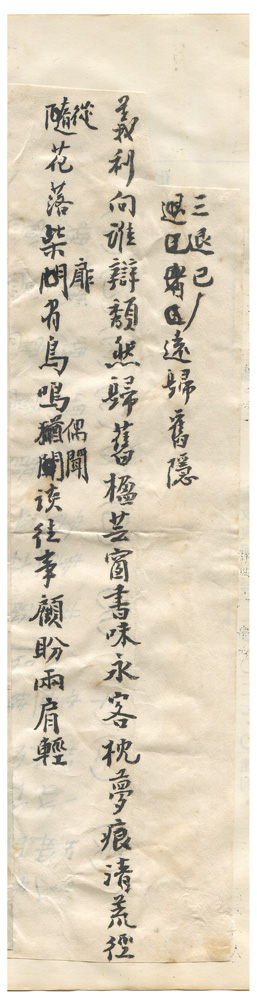 三退已
遠歸舊隱
義利向誰辯頹然歸舊楹芸窗書味永客枕夢痕清荒徑
隨從花落柴門扉有鳥鳴猶偶聞談往事顧盼兩肩輕